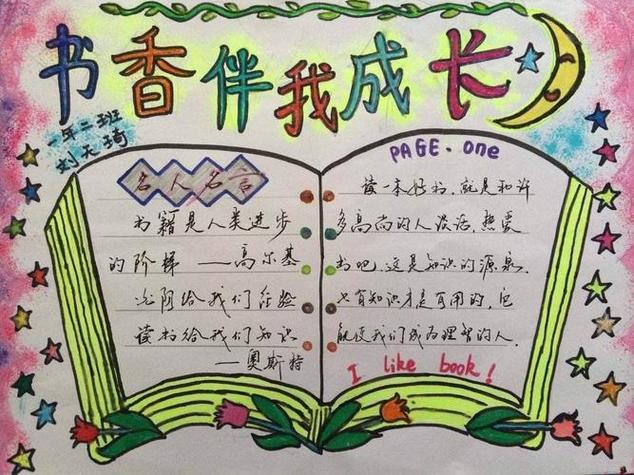 书香伴我成长
一年二班
刘天琦
名人名言
书籍是人类进步
的阶梯 ——高尔基
光阴给我们经验
读书给我们知识
——奥斯特
PAGE·one
读一本好书，就是和许
多高尚的人谈话，热爱
书吧，这是知识的源泉，
只有知识才是有用的，它
能使我们成为理智的人．
I like book!